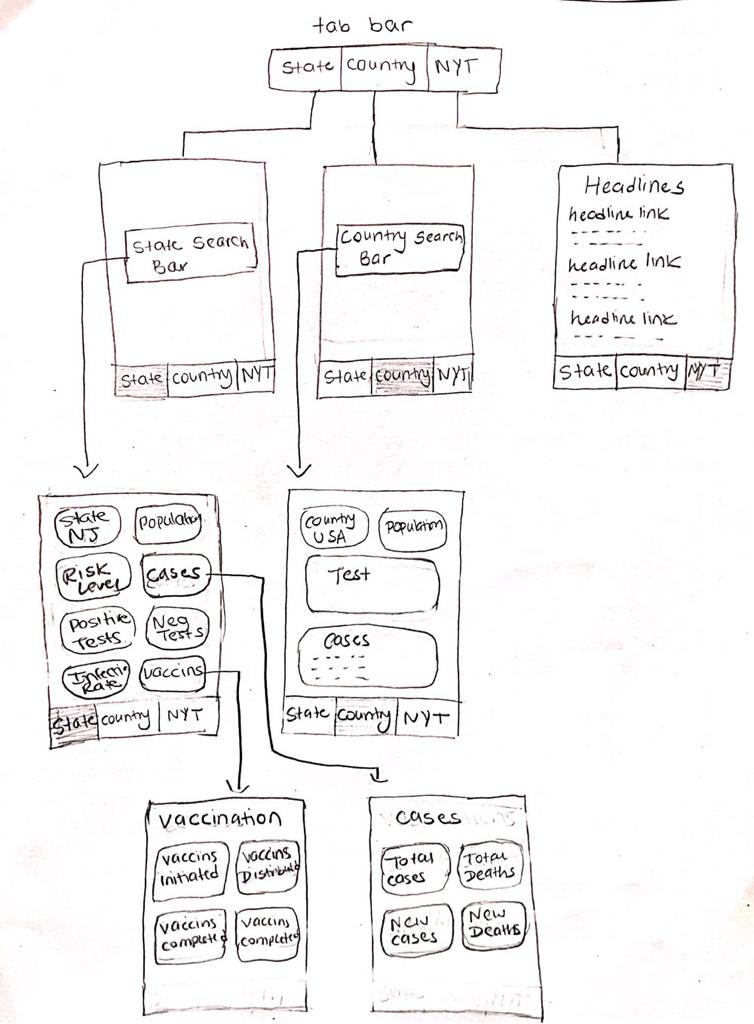 tab bar
State Country NYT
State Search
Bar
State Country NYT
Country Search
Bar
State Country NYT
Headlines
headline link
headline link
headline link
State Country NYT
State
NJ
Population
Risk
Level
Cases
Positive
Tests
Neg
Tests
Infection
Rate
Vaccins
State Country NYT
Country
USA
Population
Test
Cases
State Country NYT
Vaccination
Vaccins
initiated
Vaccins
Distributed
Vaccins
completed
Vaccins
completed
Cases
Total
Cases
Total
Deaths
New
Cases
New
Deaths